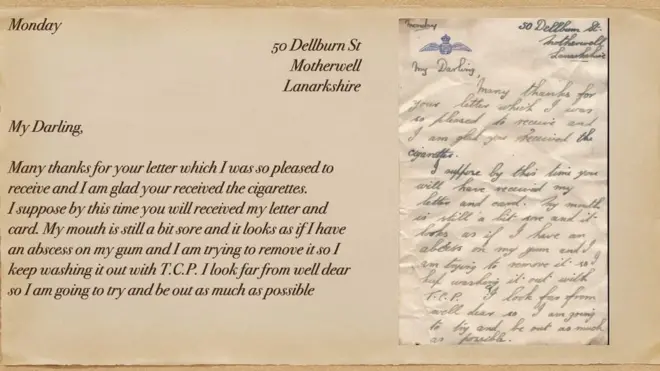 Monday
50 Dellburn St
Motherwell
Lanarkshire
My Darling,
Many thanks for your letter which I was so pleased to
receive and I am glad your received the cigarettes.
I suppose by this time you will received my letter and
card. My mouth is still a bit sore and it looks as if I have
an abscess on my gum and I am trying to remove it so I
keep washing it out with T.C.P. I look far from well dear
so I am going to try and be out as much as possible
Monday
50 Dellburn St.
Motherwell,
Lanarkshire
My Darling,
Many thanks for
your letter which I was
so pleased to receive and
I am glad you received the
cigarettes.
I suppose by this time you
will have received my
letter and card. My mouth
is still a bit sore and it
looks as if I have an
abscess on my gum and I
am trying to remove it so I
keep washing it out with
T.C.P. I look far from
well dear so I am going
to try and be out as much
as possible.